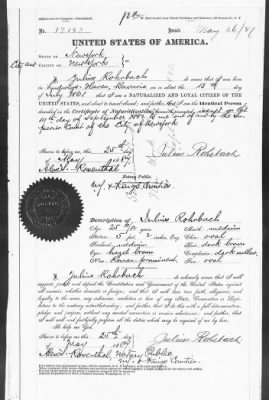 No. 12183 Issued May 26/87
UNITED STATES OF AMERICA.
STATE OF New York
COUNTY OF New York
I Julius Rohrbach do swear that I was born
in Ludwigshaven, Bavaria on or about the 15th day
of July 1861; that I am a NATURALIZED AND LOYAL CITIZEN OF THE
UNITED STATES, and about to travel abroad; and further, that I am the Identical Person
described in the Certificate of Naturalization issued on the
19th day of September 1883 to me out of and by the Su-
perior Court of the City of New York
Sworn to before me, this 25th day
of May 1887
Julius Rohrbach
Alex. Rosenthal
Notary Public
NY & Kings Counties
Description of Julius Rohrbach
Age: 25 years
Mouth: medium
Stature: 5 feet inches, Eng.
Chin: oval
Forehead: medium
Hair: dark brown
Eyes: hazel brown
Complexion: dark
Nose: Roman prominent
Face: oval
I, Julius Rohrbach do solemnly swear that I will
support, protect and defend the Constitution and Government of the United States against
all enemies, whether domestic or foreign; and that I will bear true faith, allegiance, and
loyalty to the same, any ordinance, resolution or law of any State, Convention or Legis-
lature to the contrary notwithstanding; and further, that I do this with a full determination,
pledge and purpose, without any mental reservation or evasion whatsoever; and further, that
I will well and faithfully perform all the duties which may be required of me by law.
So help me God.
Sworn to before me, this 25th day
of May 1887
Julius Rohrbach
Alex. Rosenthal, Notary Public
NY & Kings Counties